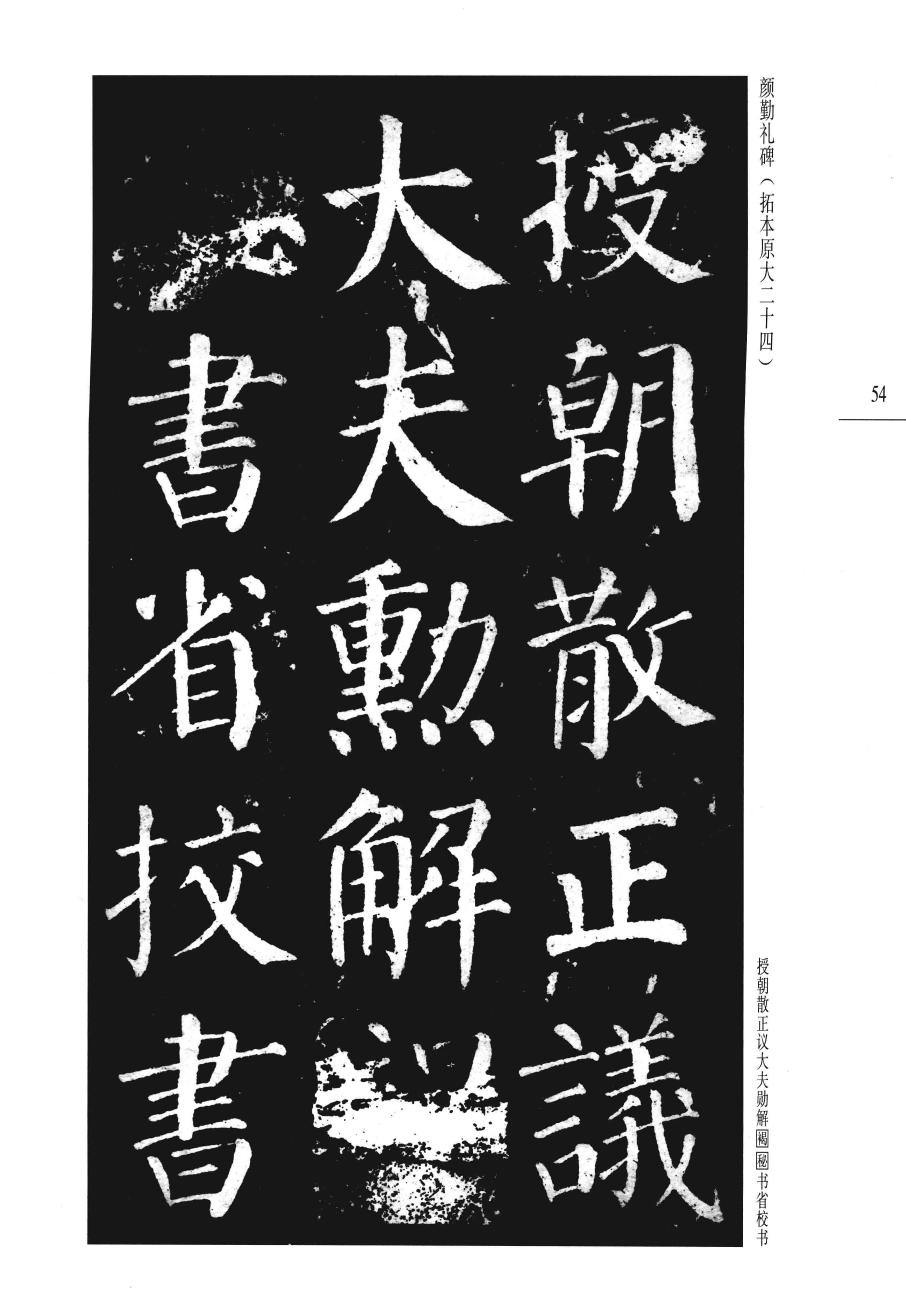 颜勤礼碑（拓本原大二十四）
54
授朝散正議
大夫勲解
書省挍書
授朝散正议大夫勋解褐秘书省校书